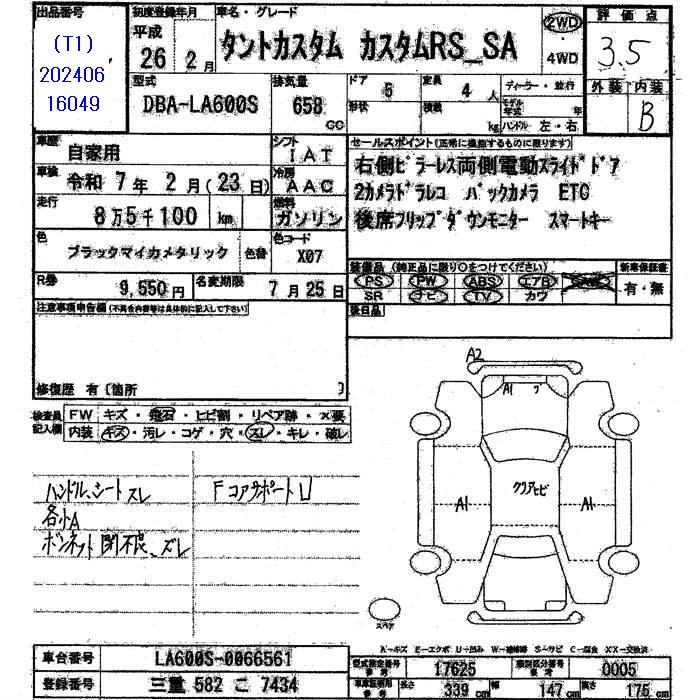 出品番号
(T1)
202406
16049
初度登録年月
平成
26 年 2 月
車名・グレード
タントカスタム カスタムRS_SA
2WD
4WD
評価点
3.5
外装 内装
B
型式
DBA-LA600S
排気量
658
CC
ドア 5
定員 4 人
形状
積載 kg
ディーラー・並行
モデル年式 年
ハンドル 左・右
車歴
自家用
シフト
IAT
車検
令和 7 年 2 月 (23 日)
冷房
AAC
走行
8万5千100 km
燃料
ガソリン
色
ブラックマイカメタリック
色替
色コード
X07
R券
9,550 円
名変期限
7 月 25 日
セールスポイント(正常に機能するものに限ります)
右側ピラーレス両側電動スライドドア
2カメラドラレコ バックカメラ ETC
後席フリップダウンモニター スマートキー
装備品 (純正品に限り○をつけてください)
PS PW ABS エアB
SR ナビ TV カワ
新車保証書
有・無
後日品
注意事項申告欄(不具合内容等は具体的に記入して下さい)
修復歴 有〔箇所 〕
検査員記入欄
FW キズ・飛石・ヒビ割・リペア跡・×要
内装 キズ・汚レ・コゲ・穴・スレ・キレ・破レ
ハンドル、シート スレ
各小A
ボンネット閉不良、ズレ
Fコアサポート U
A2
A1
A1
クリアヒビ
A1
スペア
A-キズ E-エクボ U-凹み W-補修跡 S-サビ C-腐食 XX-交換済
車台番号
LA600S-0066561
登録番号
三重 582 こ 7434
型式指定番号
17625
類別区分番号
0005
長さ 339 cm
幅 147 cm
高さ 175 cm